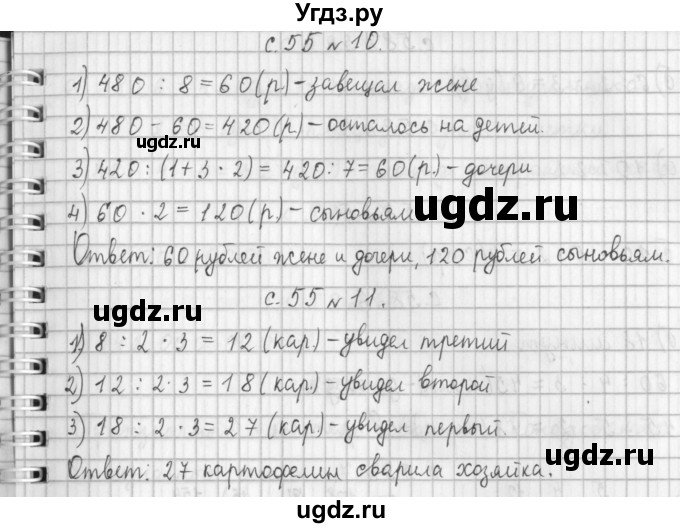 Угдз.ру
с. 55 № 10.
1) 480 : 8 = 60 (р.) – завещал жене
2) 480 – 60 = 420 (р.) – осталось на детей.
ugdz.ru
3) 420 : (1 + 3 · 2) = 420 : 7 = 60 (р.) – дочери
4) 60 · 2 = 120 (р.) – сыновьям
ugdz.ru
Ответ: 60 рублей жене и дочери, 120 рублей сыновьям.
с. 55 № 11.
ugdz.ru
1) 8 : 2 · 3 = 12 (кар) – увидел третий
2) 12 : 2 · 3 = 18 (кар) – увидел второй
3) 18 : 2 · 3 = 27 (кар) – увидел первый.
ugdz.ru
Ответ: 27 картофелин сварила хозяйка.
ugdz.ru